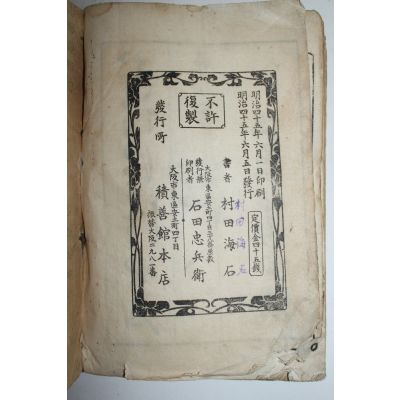 明治四十五年六月一日印刷
明治四十五年六月五日發行
定價金四十五錢
不許
復製
書者 村田海石
大阪市東區安土町四丁目
發行兼
印刷者
石田忠兵衛
發行所
大阪市東區安土町四丁目
積善館本店
振替大阪二九八一番